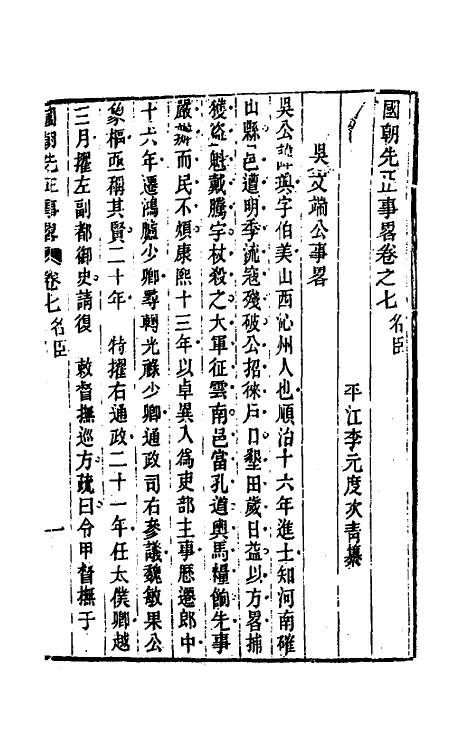 國朝先正事畧卷之七 名臣
平江李元度次青纂
吳文端公事畧
吳公諱琠字伯美山西沁州人也順治十六年進士知河南確
山縣邑遭明季流寇殘破公招徠戶口墾田歲日益以方畧捕
獲盜魁戴騰宇杖殺之大軍征雲南邑當孔道輿馬糧餉先事
嚴辦而民不煩康熙十三年以卓異入為吏部主事歷遷郎中
十六年遷鴻臚少卿尋轉光祿少卿通政司右參議魏敏果公
象樞亟稱其賢二十年 特擢右通政二十一年任太僕卿越
三月擢左副都御史請復 敕督撫巡方疏曰令甲督撫于
國朝先正事畧 卷七名臣 一